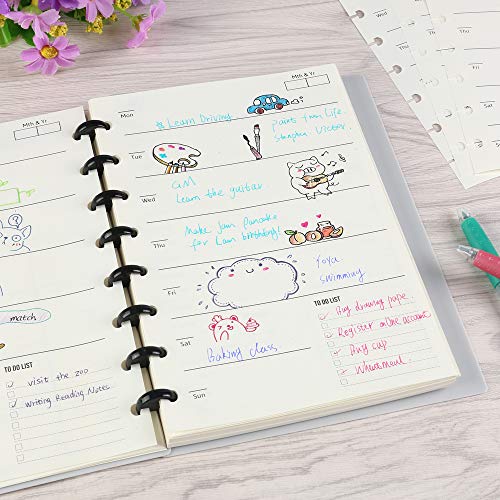 match
TO DO LIST
visit the zoo
Writing Reading Notes
Mth & Yr
Mth & Yr
Mon
# Learn Driving
Paints from Life
Tue
am
Learn the guitar
Wed
Make Jam Pancake
for Liam birthday!
Thu
Yoya
swimming
Fri
TO DO LIST
Buy drawing pape
Register online account
Buy cup
Wheatmeal
Sat
Baking class
Sun
Thu
Wed
Thu